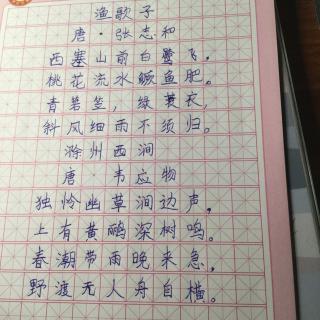 渔歌子
唐·张志和
西塞山前白鹭飞,
桃花流水鳜鱼肥。
青箬笠,绿蓑衣,
斜风细雨不须归。
滁州西涧
唐·韦应物
独怜幽草涧边声,
上有黄鹂深树鸣。
春潮带雨晚来急,
野渡无人舟自横。